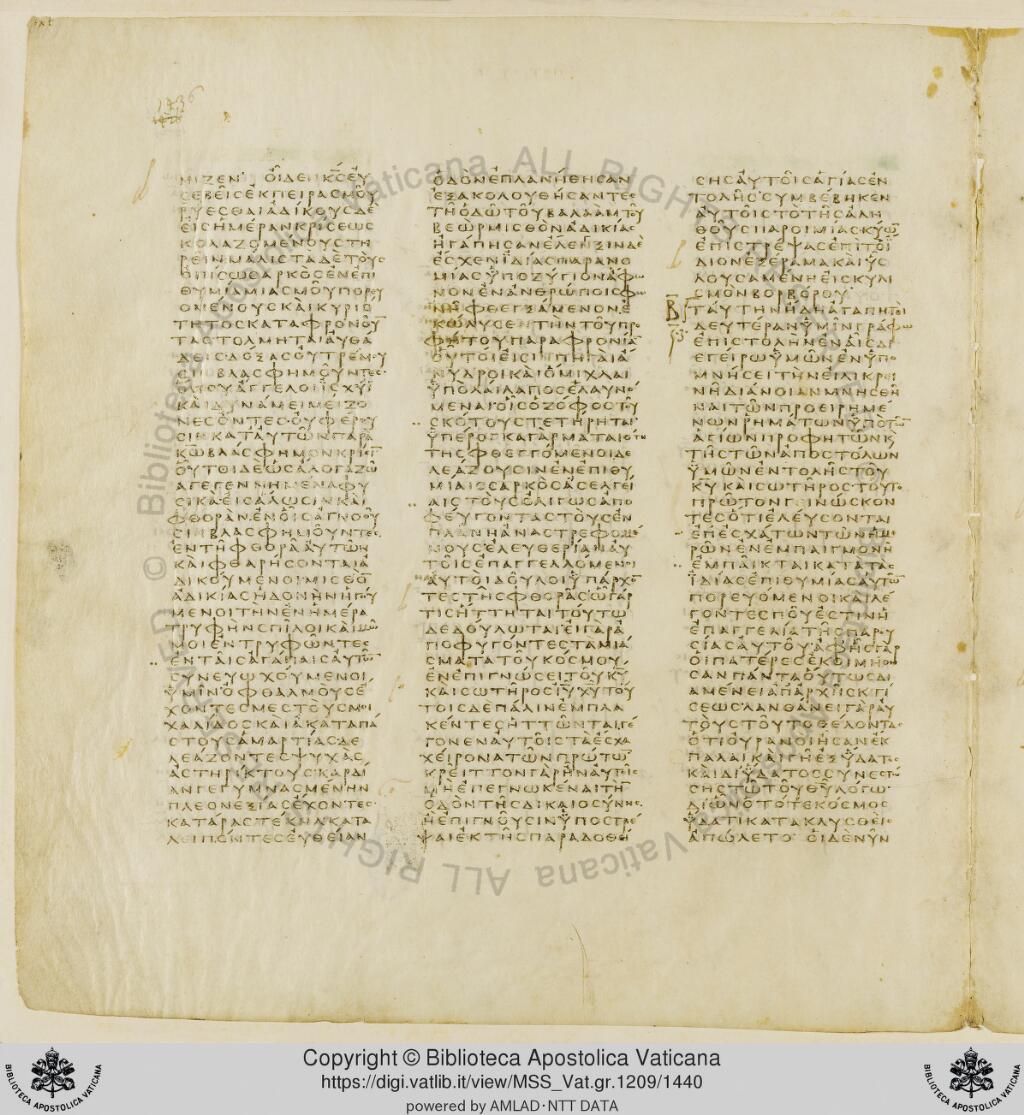 1436
ΜΙΖΕΝ ΟΙΔΕΝΚϹΕΥ
ϹΕΒΕΙϹΕΚΠΕΙΡΑϹΜΟΥ
ΡΥΕϹΘΑΙΑΔΙΚΟΥϹΔΕ
ΕΙϹΗΜΕΡΑΝΚΡΙϹΕΩϹ
ΚΟΛΑΖΟΜΕΝΟΥϹΤΗ
ΡΕΙΝΜΑΛΙϹΤΑΔΕΤΟΥϹ
ΟΠΙϹΩϹΑΡΚΟϹΕΝΕΠΙ
ΘΥΜΙΑΜΙΑϹΜΟΥΠΟΡΕΥ
ΟΜΕΝΟΥϹΚΑΙΚΥΡΙΟ
ΤΗΤΟϹΚΑΤΑΦΡΟΝΟΥ
ΤΑϹΤΟΛΜΗΤΑΙΑΥΘΑ
ΔΕΙϹΔΟΞΑϹΟΥΤΡΕΜΟΥ
ϹΙΝΒΛΑϹΦΗΜΟΥΝΤΕϹ
ΟΠΟΥΑΓΓΕΛΟΙΙϹΧΥΙ
ΚΑΙΔΥΝΑΜΕΙΜΕΙΖΟ
ΝΕϹΟΝΤΕϹΟΥΦΕΡΟΥ
ϹΙΝΚΑΤΑΥΤΩΝΠΑΡΑ
ΚΩΒΛΑϹΦΗΜΟΝΚΡΙϹΙ
ΟΥΤΟΙΔΕΩϹΑΛΟΓΑΖΩ
ΑΓΕΓΕΝΝΗΜΕΝΑΦΥ
ϹΙΚΑΕΙϹΑΛΩϹΙΝΚΑΙ
ΦΘΟΡΑΝΕΝΟΙϹΑΓΝΟΟΥ
ϹΙΝΒΛΑϹΦΗΜΟΥΝΤΕϹ
ΕΝΤΗΦΘΟΡΑΑΥΤΩΝ
ΚΑΙΦΘΑΡΗϹΟΝΤΑΙΑ
ΔΙΚΟΥΜΕΝΟΙΜΙϹΘΟ
ΑΔΙΚΙΑϹΗΔΟΝΗΝΗΓΟΥ
ΜΕΝΟΙΤΗΝΕΝΗΜΕΡΑ
ΤΡΥΦΗΝϹΠΙΛΟΙΚΑΙΜΩ
ΜΟΙΕΝΤΡΥΦΩΝΤΕϹ
ΕΝΤΑΙϹΑΓΑΠΑΙϹΑΥΤΩ
ϹΥΝΕΥΩΧΟΥΜΕΝΟΙ
ΥΜΙΝΟΦΘΑΛΜΟΥϹΕ
ΧΟΝΤΕϹΜΕϹΤΟΥϹΜΟΙ
ΧΑΛΙΔΟϹΚΑΙΑΚΑΤΑΠΑ
ϹΤΟΥϹΑΜΑΡΤΙΑϹΔΕ
ΛΕΑΖΟΝΤΕϹΨΥΧΑϹ
ΑϹΤΗΡΙΚΤΟΥϹΚΑΡΔΙ
ΑΝΓΕΓΥΜΝΑϹΜΕΝΗΝ
ΠΛΕΟΝΕΞΙΑϹΕΧΟΝΤΕϹ
ΚΑΤΑΡΑϹΤΕΚΝΑΚΑΤΑ
ΛΕΙΠΟΝΤΕϹΕΥΘΕΙΑΝ
ΟΔΟΝΕΠΛΑΝΗΘΗϹΑΝ
ΕΞΑΚΟΛΟΥΘΗϹΑΝΤΕϹ
ΤΗΟΔΩΤΟΥΒΑΛΑΑΜΤΟΥ
ΒΕΩΡΜΙϹΘΟΝΑΔΙΚΙΑϹ
ΗΓΑΠΗϹΑΝΕΛΕΓΞΙΝΔΕ
ΕϹΧΕΝΙΔΙΑϹΠΑΡΑΝΟ
ΜΙΑϹΥΠΟΖΥΓΙΟΝΑΦΩ
ΝΟΝΕΝΑΝΘΡΩΠΟΙϹΦΩ
ΝΗΦΘΕΓΞΑΜΕΝΟΝΕ
ΚΩΛΥϹΕΝΤΗΝΤΟΥΠΡΟ
ΦΗΤΟΥΠΑΡΑΦΡΟΝΙΑ
ΟΥΤΟΙΕΙϹΙΝΠΗΓΑΙΑ
ΝΥΔΡΟΙΚΑΙΟΜΙΧΛΑΙ
ΥΠΟΛΑΙΛΑΠΟϹΕΛΑΥΝΟ
ΜΕΝΑΙΟΙϹΟΖΟΦΟϹΤΟΥ
ϹΚΟΤΟΥϹΤΕΤΗΡΗΤΑΙ
ΥΠΕΡΟΓΚΑΓΑΡΜΑΤΑΙΟΤΗ
ΤΗϹΦΘΕΓΓΟΜΕΝΟΙΔΕ
ΛΕΑΖΟΥϹΙΝΕΝΕΠΙΘΥ
ΜΙΑΙϹϹΑΡΚΟϹΑϹΕΛΓΕΙ
ΑΙϹΤΟΥϹΟΛΙΓΩϹΑΠΟ
ΦΕΥΓΟΝΤΑϹΤΟΥϹΕΝ
ΠΛΑΝΗΑΝΑϹΤΡΕΦΟΜΕ
ΝΟΥϹΕΛΕΥΘΕΡΙΑΝΑΥ
ΤΟΙϹΕΠΑΓΓΕΛΛΟΜΕΝΟΙ
ΑΥΤΟΙΔΟΥΛΟΙΥΠΑΡΧΟ
ΤΕϹΤΗϹΦΘΟΡΑϹΩΓΑΡ
ΤΙϹΗΤΤΗΤΑΙΤΟΥΤΩ
ΔΕΔΟΥΛΩΤΑΙΕΙΓΑΡΑ
ΠΟΦΥΓΟΝΤΕϹΤΑΜΙΑ
ϹΜΑΤΑΤΟΥΚΟϹΜΟΥ
ΕΝΕΠΙΓΝΩϹΕΙΤΟΥΚΥ
ΚΑΙϹΩΤΗΡΟϹΙΥΧΥΤΟΥ
ΤΟΙϹΔΕΠΑΛΙΝΕΜΠΛΑ
ΚΕΝΤΕϹΗΤΤΩΝΤΑΙΓΕ
ΓΟΝΕΝΑΥΤΟΙϹΤΑΕϹΧΑ
ΧΕΙΡΟΝΑΤΩΝΠΡΩΤΩ
ΚΡΕΙΤΤΟΝΓΑΡΗΝΑΥΤΟΙϹ
ΜΗΕΠΕΓΝΩΚΕΝΑΙΤΗ
ΟΔΟΝΤΗϹΔΙΚΑΙΟϹΥΝΗϹ
ΗΕΠΙΓΝΟΥϹΙΝΥΠΟϹΤΡΕ
ΨΑΙΕΚΤΗϹΠΑΡΑΔΟΘΕΙ
ϹΗϹΑΥΤΟΙϹΑΓΙΑϹΕΝ
ΤΟΛΗϹϹΥΜΒΕΒΗΚΕΝ
ΑΥΤΟΙϹΤΟΤΗϹΑΛΗ
ΘΟΥϹΠΑΡΟΙΜΙΑϹΚΥΩ
ΕΠΙϹΤΡΕΨΑϹΕΠΙΤΟΙ
ΔΙΟΝΕΞΕΡΑΜΑΚΑΙΥϹ
ΛΟΥϹΑΜΕΝΗΕΙϹΚΥΛΙ
ϹΜΟΝΒΟΡΒΟΡΟΥ
Β ΤΑΥΤΗΝΗΔΗΑΓΑΠΗΤΟΙ
ΔΕΥΤΕΡΑΝΥΜΙΝΓΡΑΦΩ
ΕΠΙϹΤΟΛΗΝΕΝΑΙϹΔΙ
ΕΓΕΙΡΩΥΜΩΝΕΝΥΠΟ
ΜΝΗϹΕΙΤΗΝΕΙΛΙΚΡΙ
ΝΗΔΙΑΝΟΙΑΝΜΝΗϹΘΗ
ΝΑΙΤΩΝΠΡΟΕΙΡΗΜΕ
ΝΩΝΡΗΜΑΤΩΝΥΠΟΤΩ
ΑΓΙΩΝΠΡΟΦΗΤΩΝΚ
ΤΗϹΤΩΝΑΠΟϹΤΟΛΩΝ
ΥΜΩΝΕΝΤΟΛΗϹΤΟΥ
ΚΥΚΑΙϹΩΤΗΡΟϹΤΟΥΤΟ
ΠΡΩΤΟΝΓΕΙΝΩϹΚΟΝ
ΤΕϹΟΤΙΕΛΕΥϹΟΝΤΑΙ
ΕΠΕϹΧΑΤΩΝΤΩΝΗΜΕ
ΡΩΝΕΝΕΜΠΑΙΓΜΟΝΗ
ΕΜΠΑΙΚΤΑΙΚΑΤΑΤΑϹ
ΙΔΙΑϹΕΠΙΘΥΜΙΑϹΑΥΤΩ
ΠΟΡΕΥΟΜΕΝΟΙΚΑΙΛΕ
ΓΟΝΤΕϹΠΟΥΕϹΤΙΝΗ
ΕΠΑΓΓΕΛΙΑΤΗϹΠΑΡΟΥ
ϹΙΑϹΑΥΤΟΥΑΦΗϹΓΑΡ
ΟΙΠΑΤΕΡΕϹΕΚΟΙΜΗΘΗ
ϹΑΝΠΑΝΤΑΟΥΤΩϹΔΙ
ΑΜΕΝΕΙΑΠΑΡΧΗϹΚΤΙ
ϹΕΩϹΛΑΝΘΑΝΕΙΓΑΡΑΥ
ΤΟΥϹΤΟΥΤΟΘΕΛΟΝΤΑϹ
ΟΤΙΟΥΡΑΝΟΙΗϹΑΝΕΚ
ΠΑΛΑΙΚΑΙΓΗΕΞΥΔΑΤΟϹ
ΚΑΙΔΙΥΔΑΤΟϹϹΥΝΕϹΤΩ
ϹΗϹΤΩΤΟΥΘΥΛΟΓΩ
ΔΙΩΝΟΤΟΤΕΚΟϹΜΟϹ
ΥΔΑΤΙΚΑΤΑΚΛΥϹΘΕΙϹ
ΑΠΩΛΕΤΟ ΟΙΔΕΝΥΝ
Copyright © Biblioteca Apostolica Vaticana
https://digi.vatlib.it/view/MSS_Vat.gr.1209/1440
powered by AMLAD·NTT DATA
BIBLIOTECA APOSTOLICA VATICANA
BIBLIOTECA APOSTOLICA VATICANA